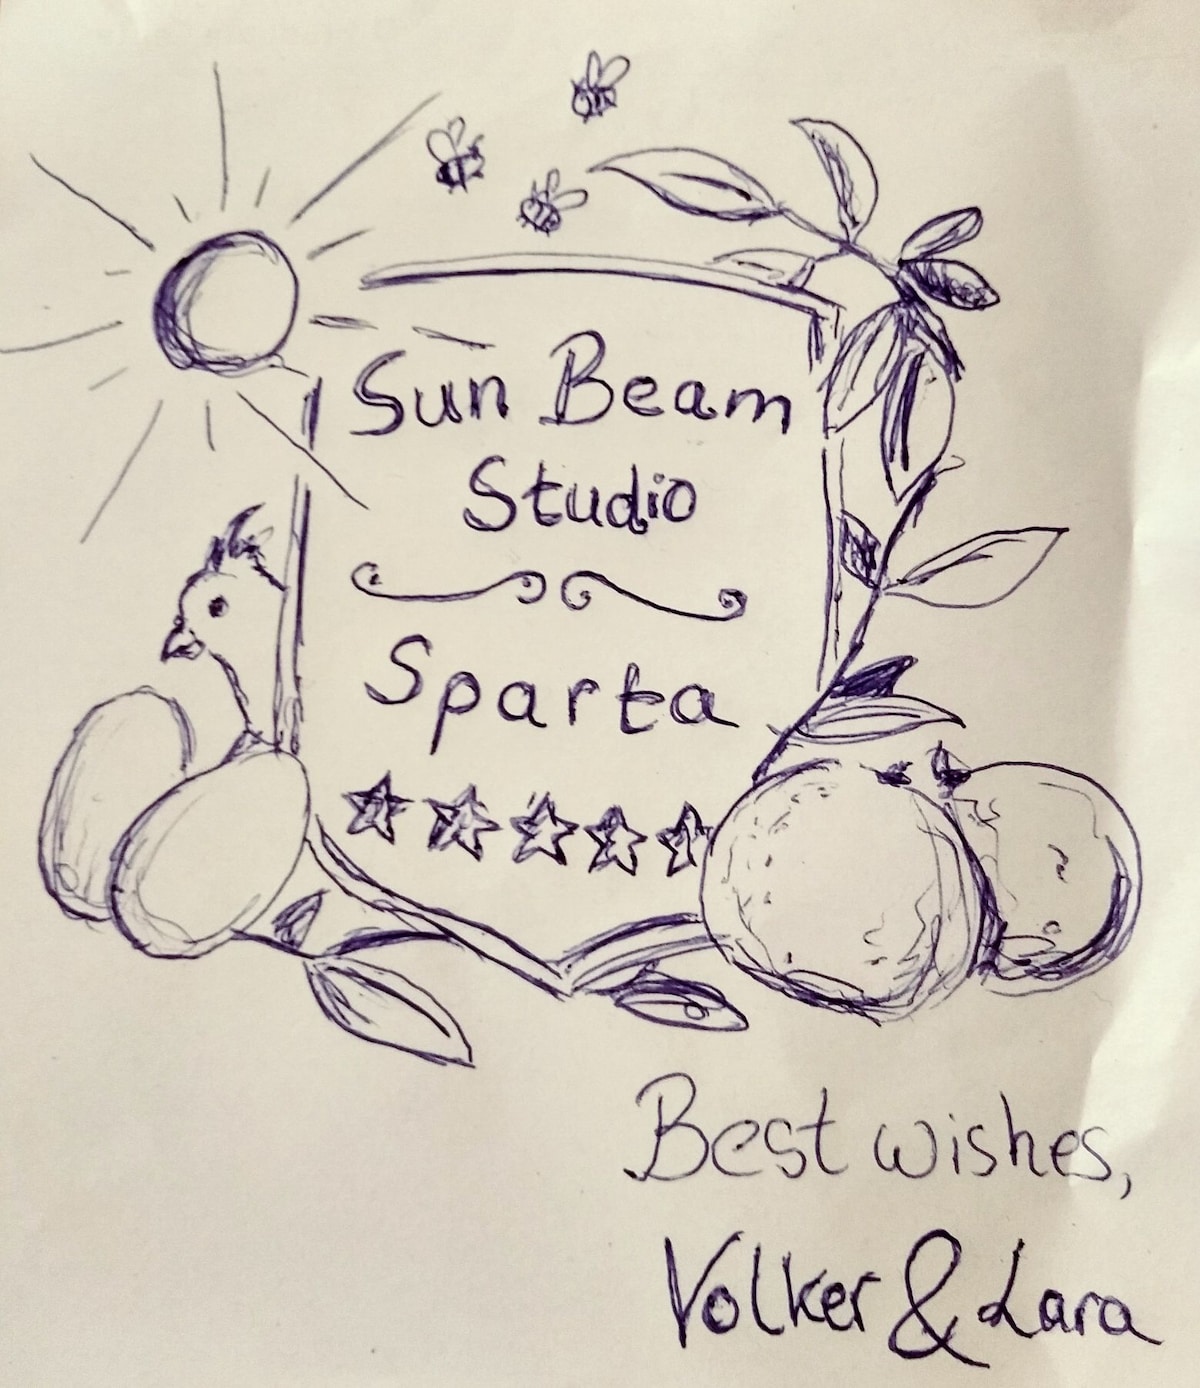 Sun Beam
Studio
Sparta
Best wishes,
Volker & Lara